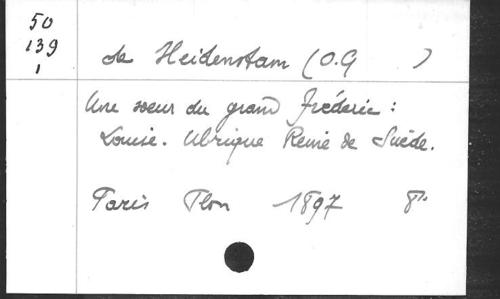 50
139
1
de Heidenstam (O.G )
Une sœur du grand Fréderic :
Louise. Ulrique Reine de Suède.
Paris Plon 1897 8°.